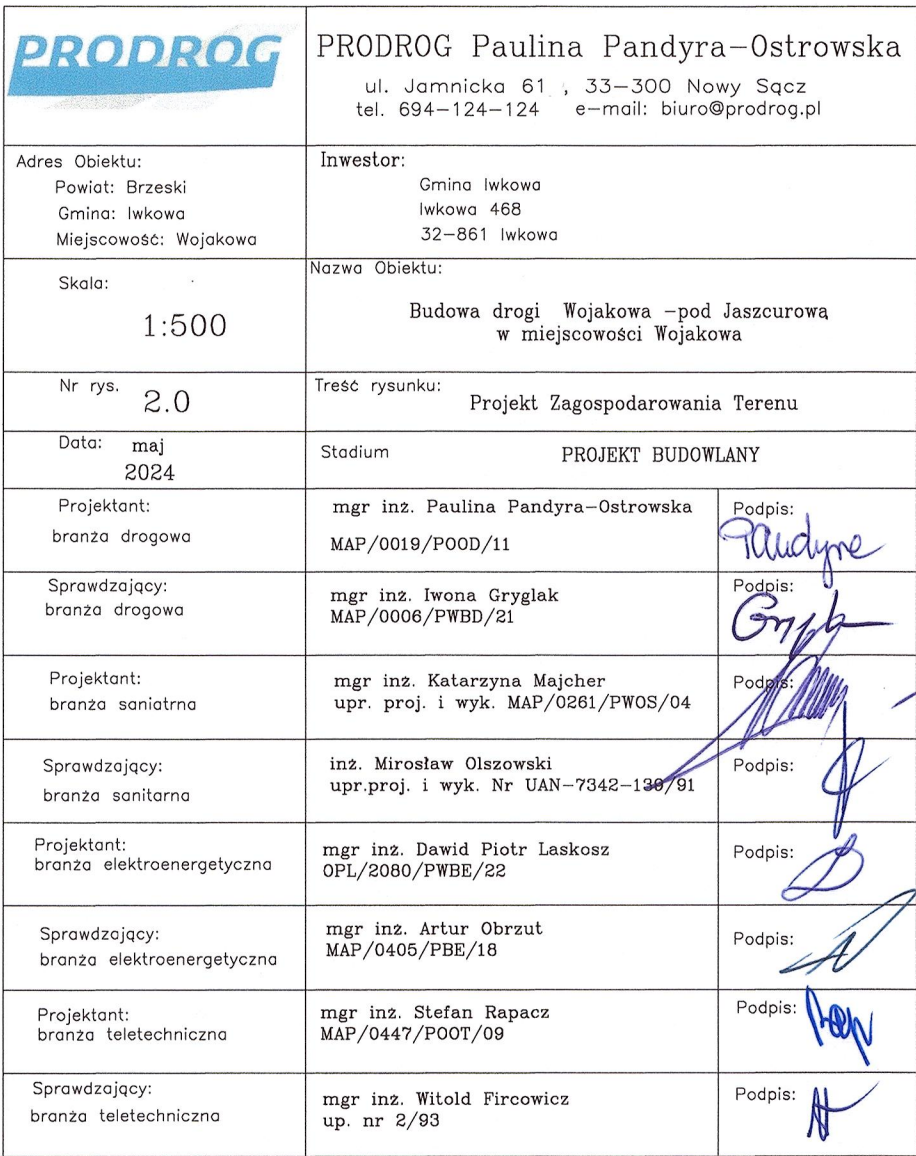 PRODROG
PRODROG Paulina Pandyra-Ostrowska
ul. Jamnicka 61 , 33-300 Nowy Sącz
tel. 694-124-124 e-mail: biuro@prodrog.pl
Adres Obiektu:
Powiat: Brzeski
Gmina: Iwkowa
Miejscowość: Wojakowa
Inwestor:
Gmina Iwkowa
Iwkowa 468
32-861 Iwkowa
Skala:
1:500
Nazwa Obiektu:
Budowa drogi Wojakowa -pod Jaszcurową
w miejscowości Wojakowa
Nr rys.
2.0
Treść rysunku:
Projekt Zagospodarowania Terenu
Data: maj
2024
Stadium PROJEKT BUDOWLANY
Projektant:
branża drogowa
mgr inż. Paulina Pandyra-Ostrowska
MAP/0019/POOD/11
Podpis:
Sprawdzający:
branża drogowa
mgr inż. Iwona Gryglak
MAP/0006/PWBD/21
Podpis:
Projektant:
branża saniatrna
mgr inż. Katarzyna Majcher
upr. proj. i wyk. MAP/0261/PWOS/04
Podpis:
Sprawdzający:
branża sanitarna
inż. Mirosław Olszowski
upr.proj. i wyk. Nr UAN-7342-139/91
Podpis:
Projektant:
branża elektroenergetyczna
mgr inż. Dawid Piotr Laskosz
OPL/2080/PWBE/22
Podpis:
Sprawdzający:
branża elektroenergetyczna
mgr inż. Artur Obrzut
MAP/0405/PBE/18
Podpis:
Projektant:
branża teletechniczna
mgr inż. Stefan Rapacz
MAP/0447/POOT/09
Podpis:
Sprawdzający:
branża teletechniczna
mgr inż. Witold Fircowicz
up. nr 2/93
Podpis: